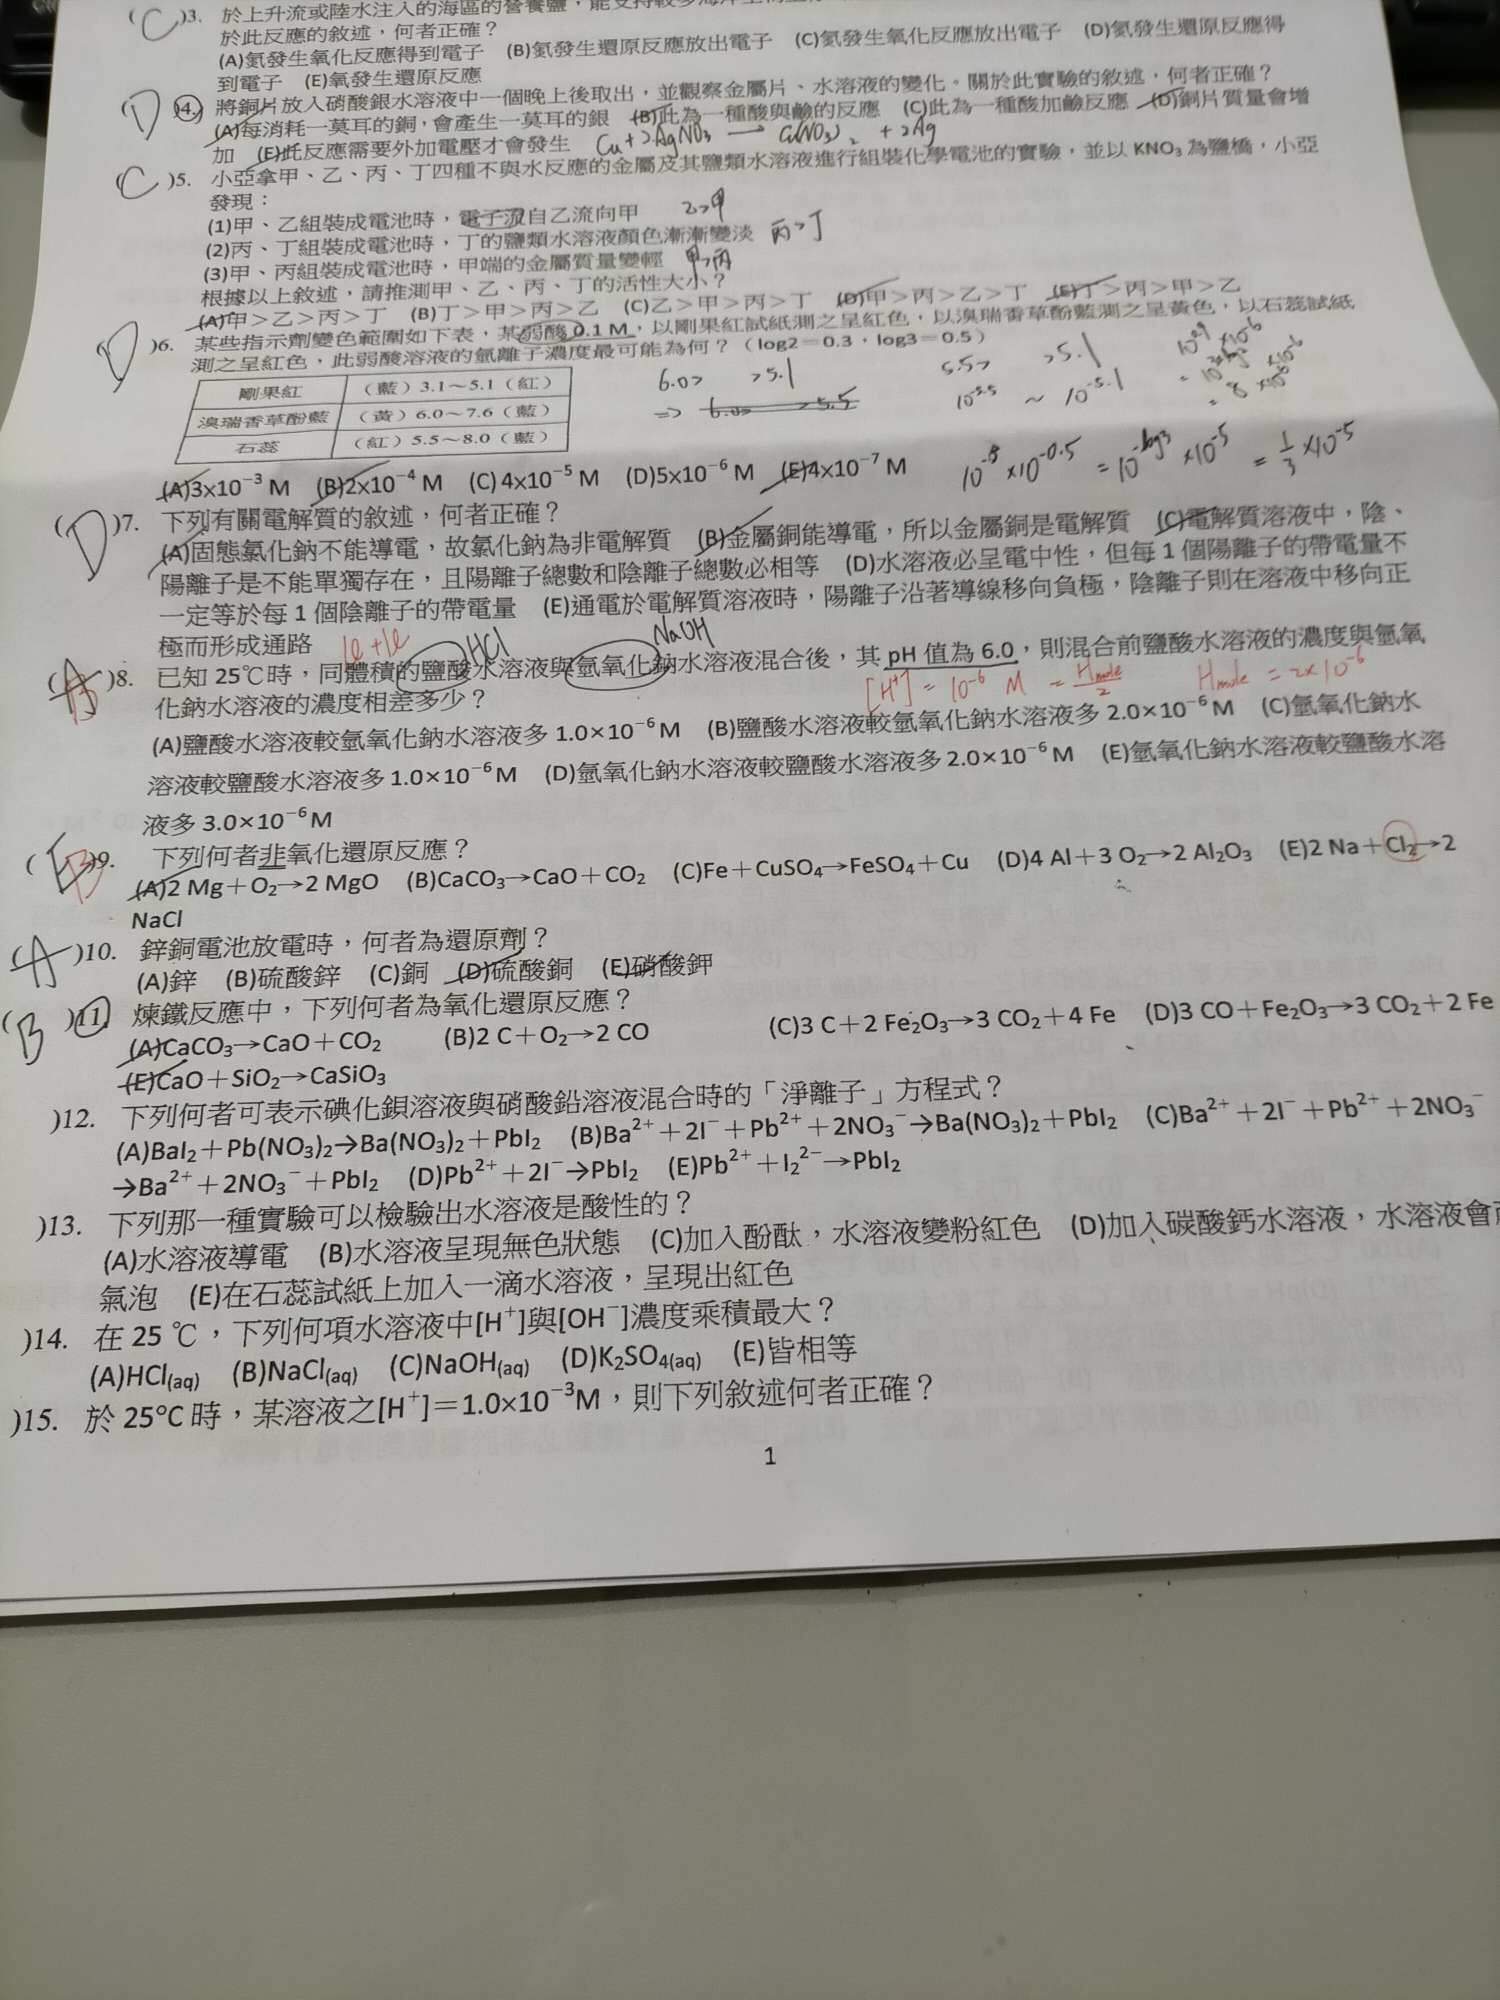 (C)3. 於上升流或陸水注入的海區的營養鹽，能支持較多海洋生
於此反應的敘述，何者正確？
(A)氮發生氧化反應得到電子 (B)氮發生還原反應放出電子 (C)氮發生氧化反應放出電子 (D)氮發生還原反應得
到電子 (E)氧發生還原反應
(D)4. 將銅片放入硝酸銀水溶液中一個晚上後取出，並觀察金屬片、水溶液的變化。關於此實驗的敘述，何者正確？
(A)每消耗一莫耳的銅，會產生一莫耳的銀 (B)此為一種酸與鹼的反應 (C)此為一種酸加鹼反應 (D)銅片質量會增
加 (E)此反應需要外加電壓才會發生 Cu+2AgNO₃ → Cu(NO₃)₂ +2Ag
(C)5. 小亞拿甲、乙、丙、丁四種不與水反應的金屬及其鹽類水溶液進行組裝化學電池的實驗，並以 KNO₃ 為鹽橋，小亞
發現：
(1)甲、乙組裝成電池時，電子流自乙流向甲 乙>甲
(2)丙、丁組裝成電池時，丁的鹽類水溶液顏色漸漸變淡 丙>丁
(3)甲、丙組裝成電池時，甲端的金屬質量變輕 甲>丙
根據以上敘述，請推測甲、乙、丙、丁的活性大小？
(A)甲＞乙＞丙＞丁 (B)丁＞甲＞丙＞乙 (C)乙＞甲＞丙＞丁 (D)甲＞丙＞乙＞丁 (E)丁＞丙＞甲＞乙
(D)6. 某些指示劑變色範圍如下表，某弱酸 0.1 M，以剛果紅試紙測之呈紅色，以溴瑞香草酚藍測之呈黃色，以石蕊試紙
測之呈紅色，此弱酸溶液的氫離子濃度最可能為何？（log2＝0.3，log3＝0.5）
剛果紅 （藍）3.1～5.1（紅）
溴瑞香草酚藍 （黃）6.0～7.6（藍）
石蕊 （紅）5.5～8.0（藍）
6.0> >5.1
5.5> >5.1
10⁻⁵·⁵ ~ 10⁻⁵·¹
(A)3x10⁻³ M (B)2x10⁻⁴ M (C) 4x10⁻⁵ M (D)5x10⁻⁶ M (E)4x10⁻⁷ M
10⁻⁵ ×10⁻⁰·⁵ = 10⁻ˡᵒᵍ³ ×10⁻⁵ = 1/3 ×10⁻⁵
(D)7. 下列有關電解質的敘述，何者正確？
(A)固態氯化鈉不能導電，故氯化鈉為非電解質 (B)金屬銅能導電，所以金屬銅是電解質 (C)電解質溶液中，陰、
陽離子是不能單獨存在，且陽離子總數和陰離子總數必相等 (D)水溶液必呈電中性，但每 1 個陽離子的帶電量不
一定等於每 1 個陰離子的帶電量 (E)通電於電解質溶液時，陽離子沿著導線移向負極，陰離子則在溶液中移向正
極而形成通路 1l+1l HCl NaOH
(B)8. 已知 25℃時，同體積的鹽酸水溶液與氫氧化鈉水溶液混合後，其 pH 值為 6.0，則混合前鹽酸水溶液的濃度與氫氧
化鈉水溶液的濃度相差多少？ [H⁺] = 10⁻⁶ M = Hmole/2 Hmole = 2x10⁻⁶
(A)鹽酸水溶液較氫氧化鈉水溶液多 1.0×10⁻⁶ M (B)鹽酸水溶液較氫氧化鈉水溶液多 2.0×10⁻⁶ M (C)氫氧化鈉水
溶液較鹽酸水溶液多 1.0×10⁻⁶ M (D)氫氧化鈉水溶液較鹽酸水溶液多 2.0×10⁻⁶ M (E)氫氧化鈉水溶液較鹽酸水溶
液多 3.0×10⁻⁶ M
(B)9. 下列何者非氧化還原反應？
(A)2 Mg＋O₂→2 MgO (B)CaCO₃→CaO＋CO₂ (C)Fe＋CuSO₄→FeSO₄＋Cu (D)4 Al＋3 O₂→2 Al₂O₃ (E)2 Na＋Cl₂→2
NaCl
(A)10. 鋅銅電池放電時，何者為還原劑？
(A)鋅 (B)硫酸鋅 (C)銅 (D)硫酸銅 (E)硝酸鉀
(B)11. 煉鐵反應中，下列何者為氧化還原反應？
(A)CaCO₃→CaO＋CO₂ (B)2 C＋O₂→2 CO (C)3 C＋2 Fe₂O₃→3 CO₂＋4 Fe (D)3 CO＋Fe₂O₃→3 CO₂＋2 Fe
(E)CaO＋SiO₂→CaSiO₃
)12. 下列何者可表示碘化鋇溶液與硝酸鉛溶液混合時的「淨離子」方程式？
(A)BaI₂＋Pb(NO₃)₂→Ba(NO₃)₂＋PbI₂ (B)Ba²⁺＋2I⁻＋Pb²⁺＋2NO₃⁻→Ba(NO₃)₂＋PbI₂ (C)Ba²⁺＋2I⁻＋Pb²⁺＋2NO₃⁻
→Ba²⁺＋2NO₃⁻＋PbI₂ (D)Pb²⁺＋2I⁻→PbI₂ (E)Pb²⁺＋I₂²⁻→PbI₂
)13. 下列那一種實驗可以檢驗出水溶液是酸性的？
(A)水溶液導電 (B)水溶液呈現無色狀態 (C)加入酚酞，水溶液變粉紅色 (D)加入碳酸鈣水溶液，水溶液會產
氣泡 (E)在石蕊試紙上加入一滴水溶液，呈現出紅色
)14. 在 25 ℃，下列何項水溶液中[H⁺]與[OH⁻]濃度乘積最大？
(A)HCl(aq) (B)NaCl(aq) (C)NaOH(aq) (D)K₂SO₄(aq) (E)皆相等
)15. 於 25°C 時，某溶液之[H⁺]＝1.0×10⁻³M，則下列敘述何者正確？
1